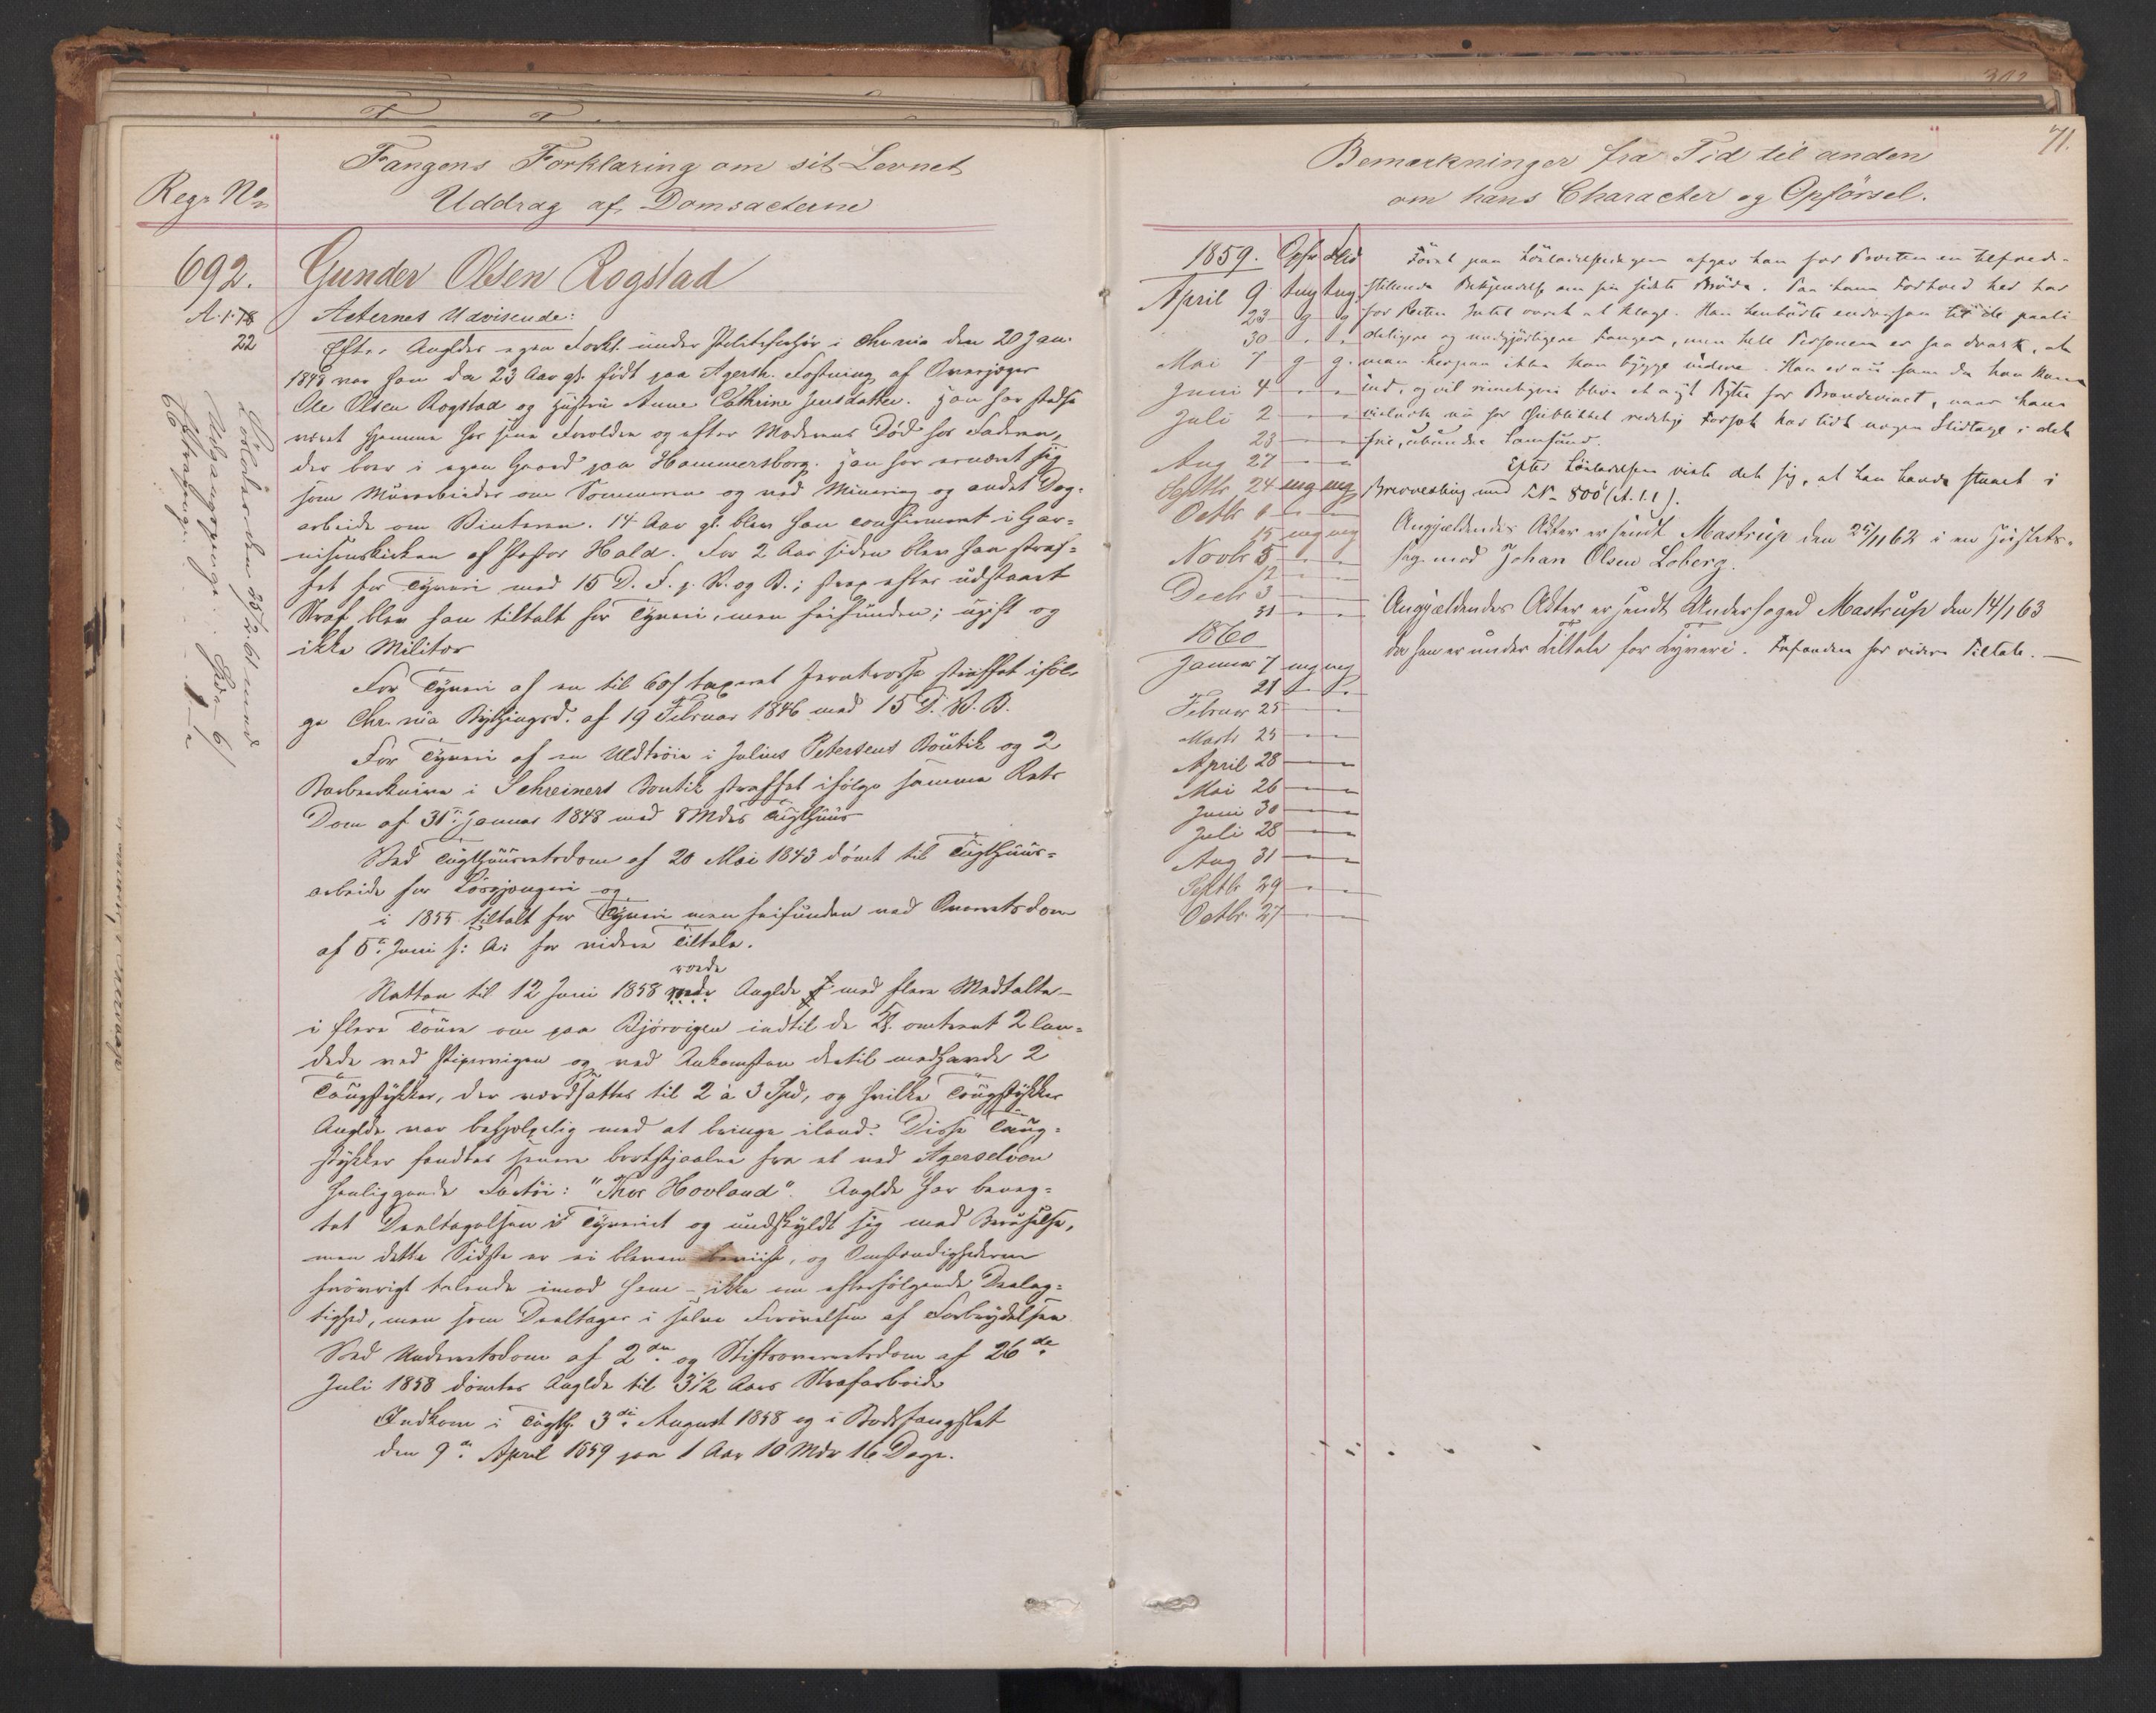 Fangens Forklaring om sit Levnet
Uddrag af Domsacterne
Regr. No.
692.
Gunder Olsen Rogstad
A. 1. 78
22
Acternes Udvisende:
Efter Angldes egen Forkl. under Politiforhør i Chr.nia den 20 Jan.
1848 var han da 23 Aar gl. født paa Agersh. Festning af Overjæger
Ole Olsen Rogstad og Hustru Anne Cathrine Jensdatter. Han har stedse
været hjemme hos sine Forældre og efter Moderens Död hos Faderen,
der boer i egen Gaard paa Hammersborg. Han har ernæret sig
som Muurarbeider om Sommeren og ved Minering og andet Dag-
arbeide om Vinteren. 14 Aar gl. blev han confirmeret i Gar-
nisonskirken af Pastor Hald. For 2 Aar siden blev han straf-
fet for Tyveri med 15 D. F. p. V. og B.; strax efter udstaaet
Straf blev han tiltalt for Tyveri, men frifunden; ugift og
ikke Militær
For Tyveri af en til 60 s taxeret straffet iföl-
ge Chr.nia Bythingsd. af 19 Februar 1846 med 15 D. V. B.
For Tyveri af en Uldtröie i Julius Petersens Boutik og 2
Barbeerknive i Schreiners Boutik straffet ifölge samme Rets
Dom af 31 Januar 1848 med 8 Mdrs Tugthuus
Ved Tugthuusretsdom af 20 Mai 1843 dömt til Tugthuus-
arbeide for Lösgjængeri og
i 1855 tiltalt for Tyveri men frifunden ved Overretsdom
af 5te Juni s: A: for videre Tiltale.
roede
Natten til 12 Juni 1858 Anglde med flere Medtalte
i flere Toure om paa Björvigen indtil de Kl. omtrent 2 lan-
dede ved Pipervigen og ved Ankomsten dertil medhavde 2
Tougstykker, der værdsattes til 2 à 3 Spd, og hvilke Tougstykker
Anglde var behjelpelig med at bringe iland. Disse Toug-
stykker fandtes senere bortstjaalne fra et ved Agerselven
henliggende Fartöi: "Thor Hovland". Anglde har benæg-
tet Deeltagelsen i Tyveriet og undskyldt sig med Beruselse,
men dette Sidste er ei bleven beviist, og Omstændighederne
forövrigt talende imod ham - ikke om efterfölgende Deelag-
tighed, men som Deeltager i selve Forövelsen af Forbrydelsen
Ved Underretsdom af 2den og Stiftsoverretsdom af 26de
Juli 1858 dömtes Anglde til 3 1/2 Aars Strafarbeide
Indkom i Tugth. 3de August 1858 og i Bodsfængslet
den 9de April 1859 paa 1 Aar 10 Mdr 16 Dage.
Löslodes den 25/2. 61 med
Udgangspenge Spd. 6
71.
Bemærkninger fra Tid til anden
om hans Character og Opførsel.
1859. Opför. Flid
April 9 tmg tmg
23 g g
30
Mai 7 g g.
Juni 4
Juli 2
23
Aug 27
Septbr. 24 mg mg
Octbr 1
15 mg mg
Novbr 5
12
Decbr 3
31
1860
Januar 7 mg mg
21
Februar 25
Marts 25
April 28
Mai 26
Juni 30
Juli 28
Aug 31
Septbr 29
Octbr. 27
Först paa Lösladelsesdagen afgav han for Præsten en tilfreds-
stillende Bekjendelse om sin sidste Bröde. Paa hans Forhold her har
for Resten Intet været at klage. Han henhörte endogsaa til de paali-
deligere og medgjörligere Fanger, men hele Personen er saa svag, at
man herpaa ikke kan bygge videre. Han er nu som da han kom
ind, og vil rimeligvis blive et nyt Bytte for Brændeviinet, naar hans
maaskee nu for Öieblikket redelige Forsæt har lidt nogen Slidtage i det
frie, ubundne Samfund.
Efter Lösladelsen viste det sig, at han havde staaet i
Brevvexling med F. No. 800 (A. 1.1).
Angjældendes Akter er sendt Mastrup den 25/11 62 i en Justits-
sag mod Johan Olsen Loberg.
Angjældendes Akter er sendt Underfoged Mastrup den 14/1 63
da han er under Tiltale for Tyveri. Frifunden for videre Tiltale.